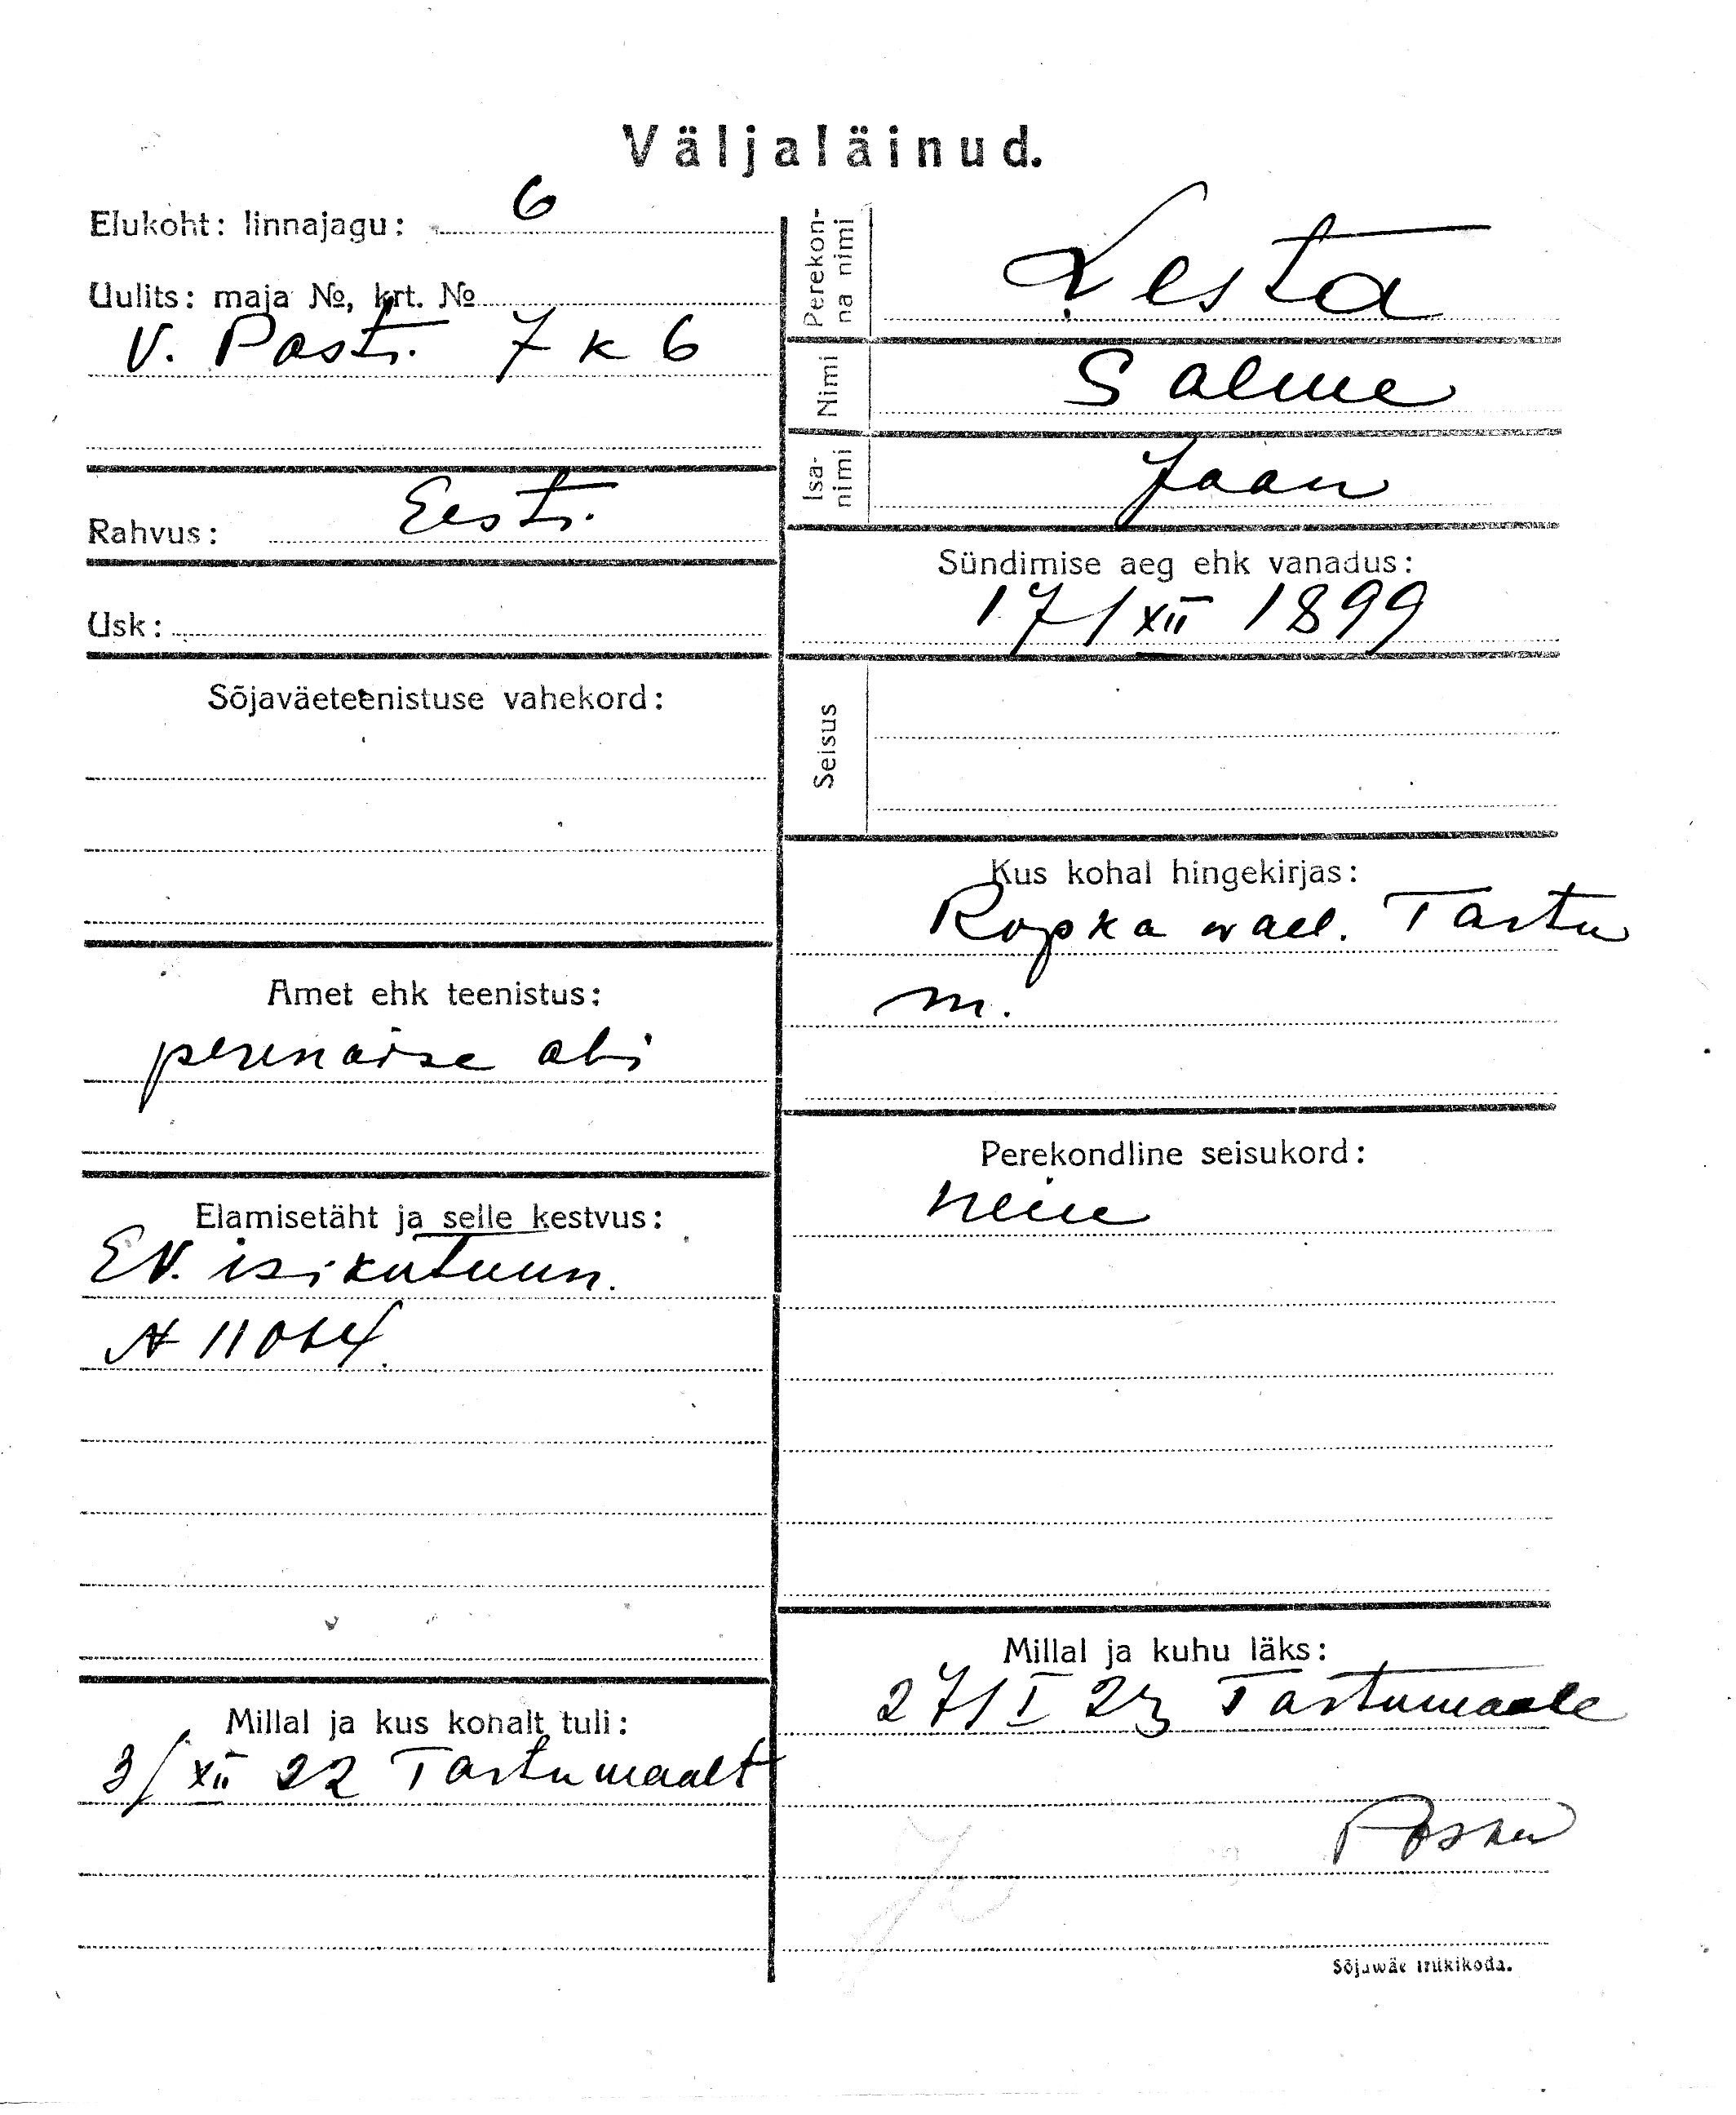 Väljaläinud.
Elukoht: linnajagu: 6
Uulits: maja №, krt. №
V. Postr. 7 k 6
Rahvus: Eestr.
Usk:
Sõjaväeteenistuse vahekord:
Amet ehk teenistus:
perenaise abi
Elamisetäht ja selle kestvus:
EV. isikutunn.
№ 11064
Millal ja kus kohalt tuli:
3/XII 22 Tartumaalt
Perekon-
na nimi
Lesta
Nimi Salme
Isa-
nimi
Jaan
Sündimise aeg ehk vanadus:
17/XII 1899
Seisus
Kus kohal hingekirjas:
Ropka wall. Tartu
m.
Perekondline seisukord:
neiu
Millal ja kuhu läks:
27/I 23 Tartumaale
Sõjawäe trükikoda.